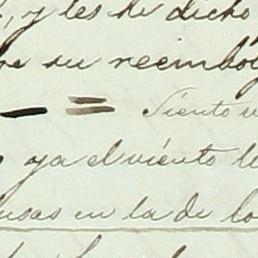 y les he dicho
su reembo
— = Siento
ya el viento
en la de lo